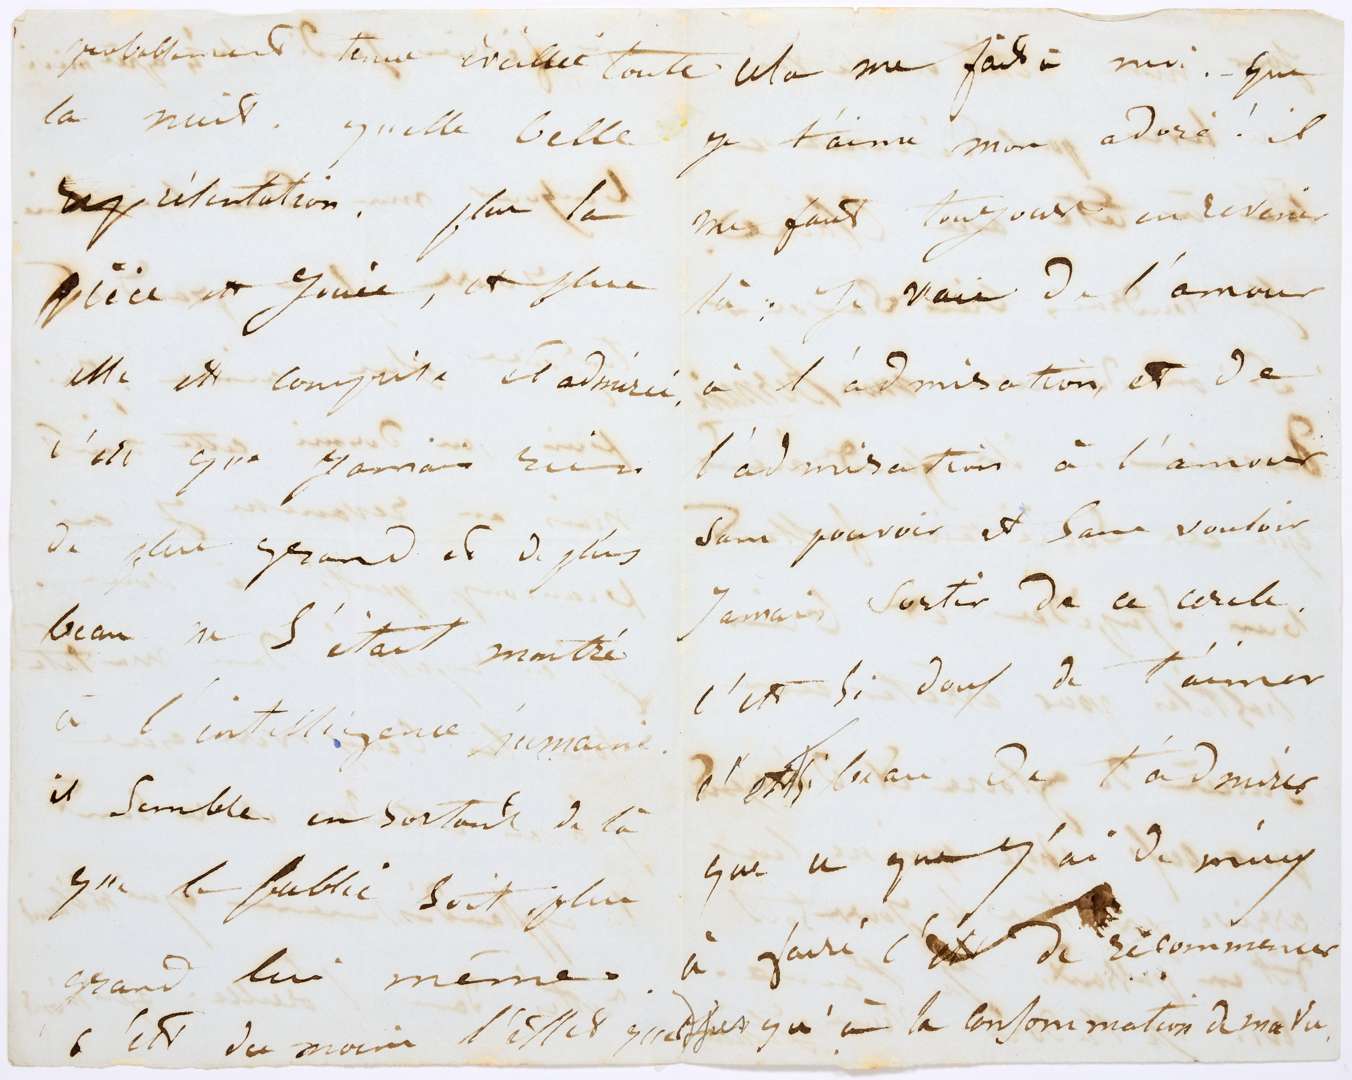 probablement tenue éveillée toute
la nuit. quelle belle
représentation. plus la
pièce est Jouée, et plus
elle est comprise et admirée,
c'est que Jamais rien
de plus grand et de plus
beau ne s'était montré
à l'intelligence humaine.
il semble en sortant de là
que le public soit plus
grand lui même.
c'est du moins l'effet que
cela me fait à moi. - que
je t'aime mon adoré ! il
me faut toujours en revenir
là : Je vais de l'amour
à l'admiration, et de
l'admiration à l'amour
sans pouvoir et sans vouloir
Jamais sortir de ce cercle.
c'est si doux de t'aimer
c'est si beau de t'admirer
que ce que J'ai de mieux
à faire c'est de recommencer
jusqu'à la consommation de ma vie.